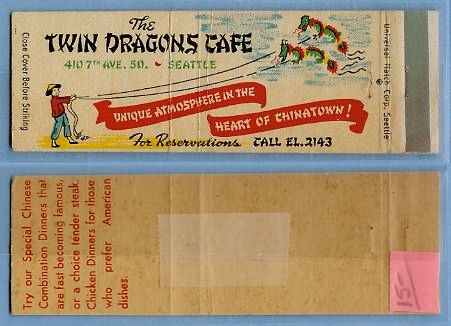 The
TWIN DRAGONS CAFE
410 7TH AVE. SO. - SEATTLE
UNIQUE ATMOSPHERE IN THE
HEART OF CHINATOWN!
For Reservations CALL EL. 2143
Close Cover Before Striking
Universal Match Corp., Seattle
Try our Special Chinese
Combination Dinners that
are fast becoming famous,
or a choice tender steak.
Chicken Dinners for those
who prefer American
dishes.